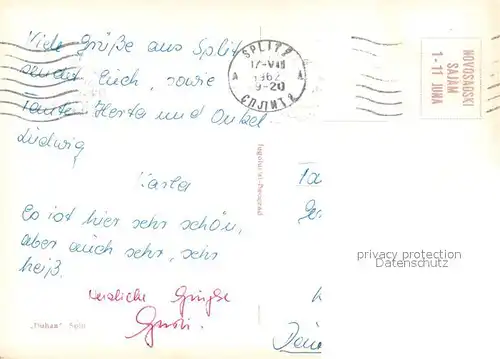 Viele Grüße aus Split
sendet Euch, sowie
Tante Herta und Onkel
Ludwig
Karla
Es ist hier sehr schön,
aber auch sehr, sehr
heiß.
herzliche Grüße
SPLIT 2
17-VIII
1962
9-20
A A
СПЛИТ 2
NOVOSADSKI
SAJAM
1-11 JUNA
Jugoturist-Beograd
privacy protection
Datenschutz